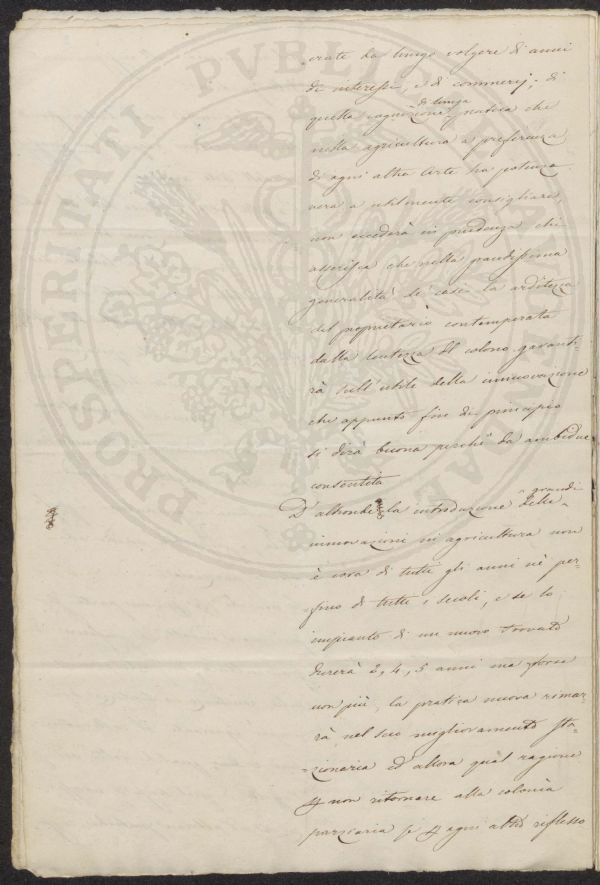 -crate da lungo volgere di anni
di interessi, e di commercj; di
quella cognizione di lunga pratica che
nella agricultura a preferenza
di ogni altra Arte ha potenza
vera a utilmente consigliare,
non eccederà in prudenza chi
asserisca che nella grandissima
generalità de' casi la arditezza
del proprietario contemperata
dalla lentezza del colono garanti-
rà sull'utile della innovazione
che appunto fine di principio
si dirà buona perché da ambidue
consentita
D'altronde la introduzione delle grandi
innovazioni in agricultura non
è cosa di tutti gli anni nè per-
fino di tutti i secoli, e se lo
impianto di un nuovo trovato
durerà 2, 4, 5 anni ma forse
non più, la pratica nuova rimar-
rà nel suo miglioramento sta-
-zionaria ed allora qual ragione
p non ritornare alla colonia
parziaria se p ogni altro riflesso
PROSPERITATI PVBLICAE AVGENDAE